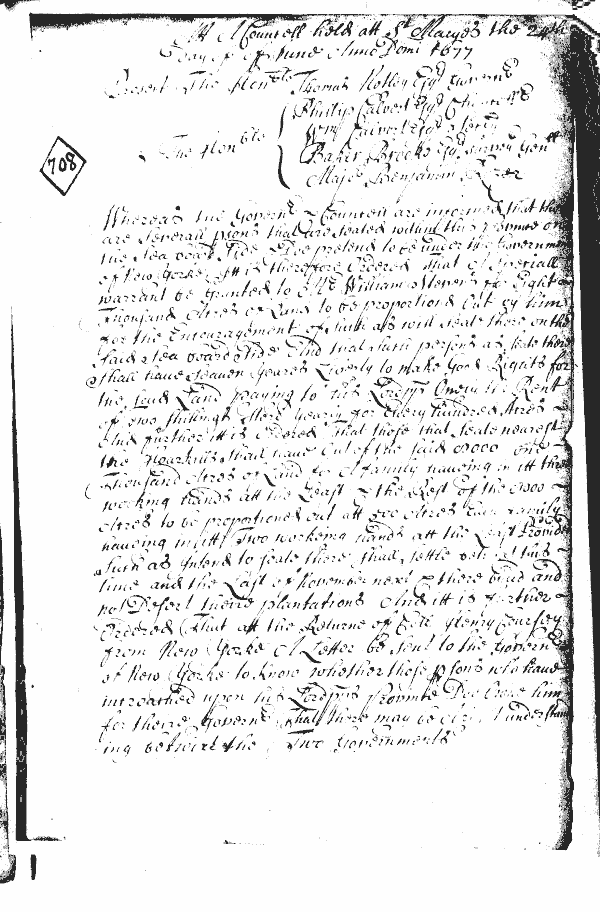 Att A Councell held att St Maryes the 24th
Day of June Anno Domi 1677
Present The Honble Thomas Notley Esqr Governr
Philip Calvert Esqr Chancellr
The Honble Wm Calvert Esqr Secrty
Baker Brooke Esqr Survey Genll
708
Majr Benjamin Rozer
Whereas the Governr & Councell are informed that there
are severall psons that are seated within this Province on
the sea board side & Doe pretend to be under the Governmt
of New Yorke Itt is therefore Ordered that A Speciall
warrant be granted to Mr William Stevens for Eight
Thousand Acres of Land to be proportioned Out by him
for the Encouragement of such as will seate there on the
said sea board side And that such persons as seate there
shall have seaven Yeares Liberty to make Good Rights for
the said Land paying to his Lordpp Onely the Rent
of two shillings Sterl yearly for every hundred Acres
And further itt is Ordered that those that seate nearest
the Whorekills shall have Out of the said 8000 one
Thousand Acres of Land for A family haveing in itt three
working hands att the Least & the Rest of the 8000
Acres to be proportioned out att 500 Acres each family
haveing in itt Two workeing hands att the Least Provided
such as Intend to seate there shall settle betwixt this
time and the Last of November next & there build and
not Desert theire plantations And itt is further
Ordered that att the Returne of Coll Henry Coursey
from New Yorke A Letter be sent to the Governr
of New Yorke to know whether those psons who have
incroached upon his Lordpps Province Doe Owne him
for theire Governr that there may be understand
ing betwixt the Two Governments